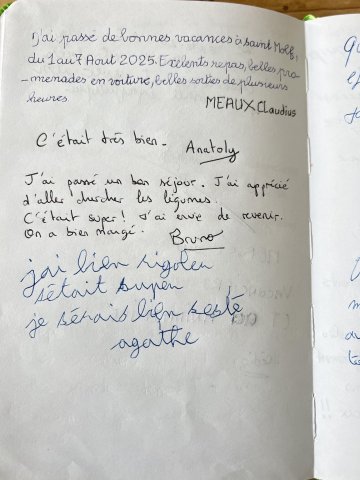 J'ai passé de bonnes vacances à saint Molf,
du 1 au 7 Aout 2025. Exelents repas, belles pro-
-menades en voiture, belles sorties de plusieurs
heures
MEAUX Claudius
C'était très bien.
Anatoly
J'ai passé un bon séjour. J'ai apprécié
d'aller chercher les légumes.
C'était super! J'ai envie de revenir.
On a bien mangé.
Bruno
j'ai bien rigoleu
sétait super
je sérais bien resté
agathe